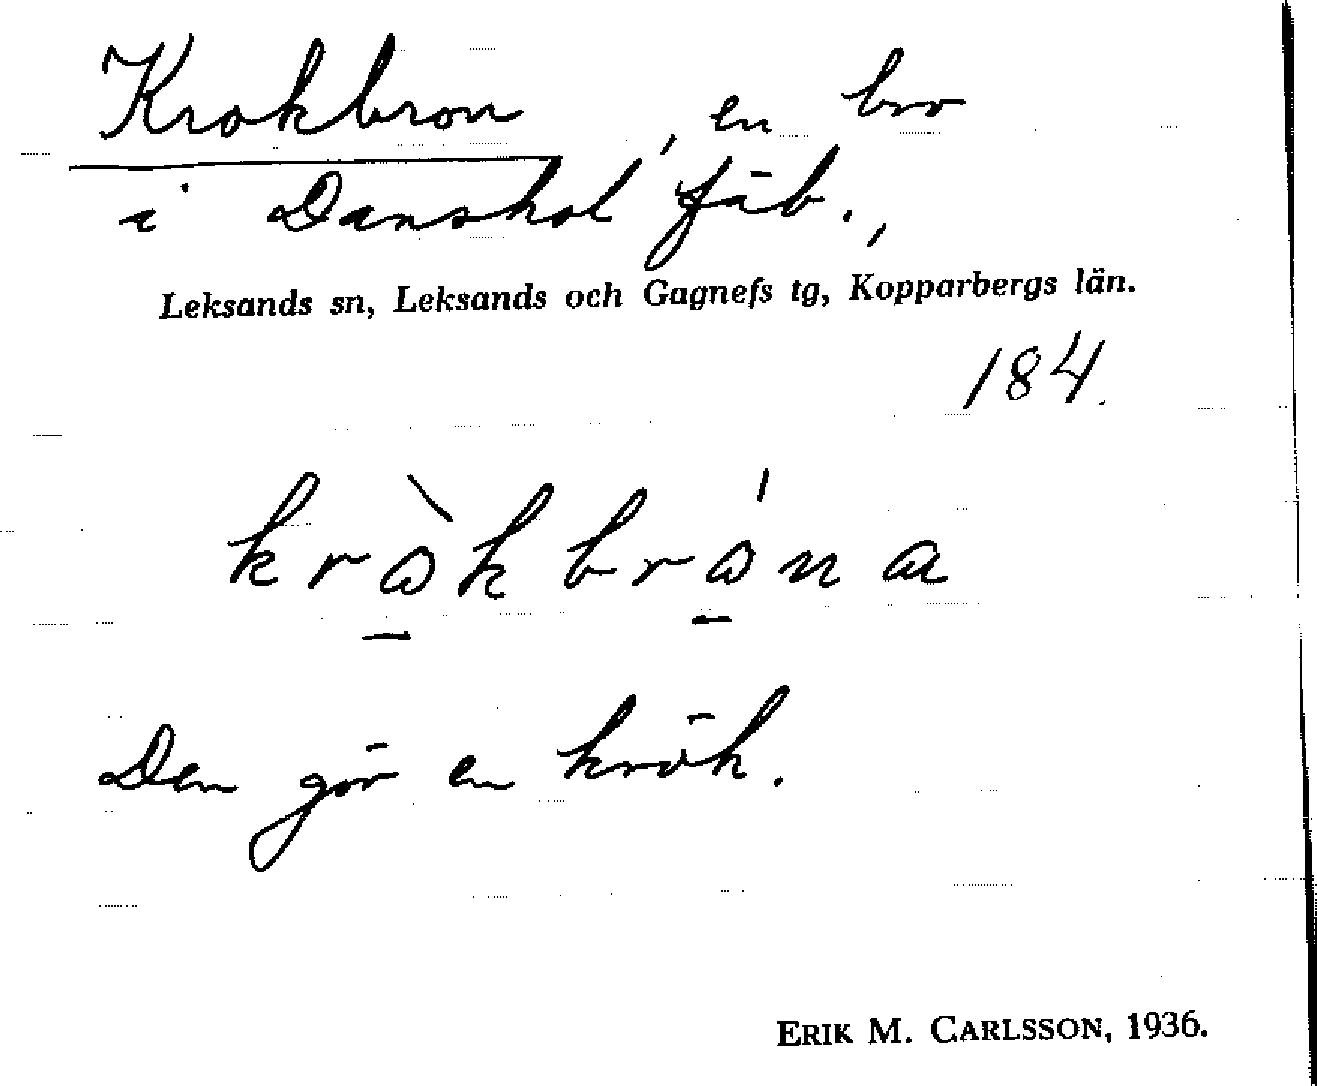 Krokbron, en bro
i Danshol fäb.,
Leksands sn, Leksands och Gagnefs tg, Kopparbergs län.
184.
kròkbróna
Den gör en krök.
ERIK M. CARLSSON, 1936.